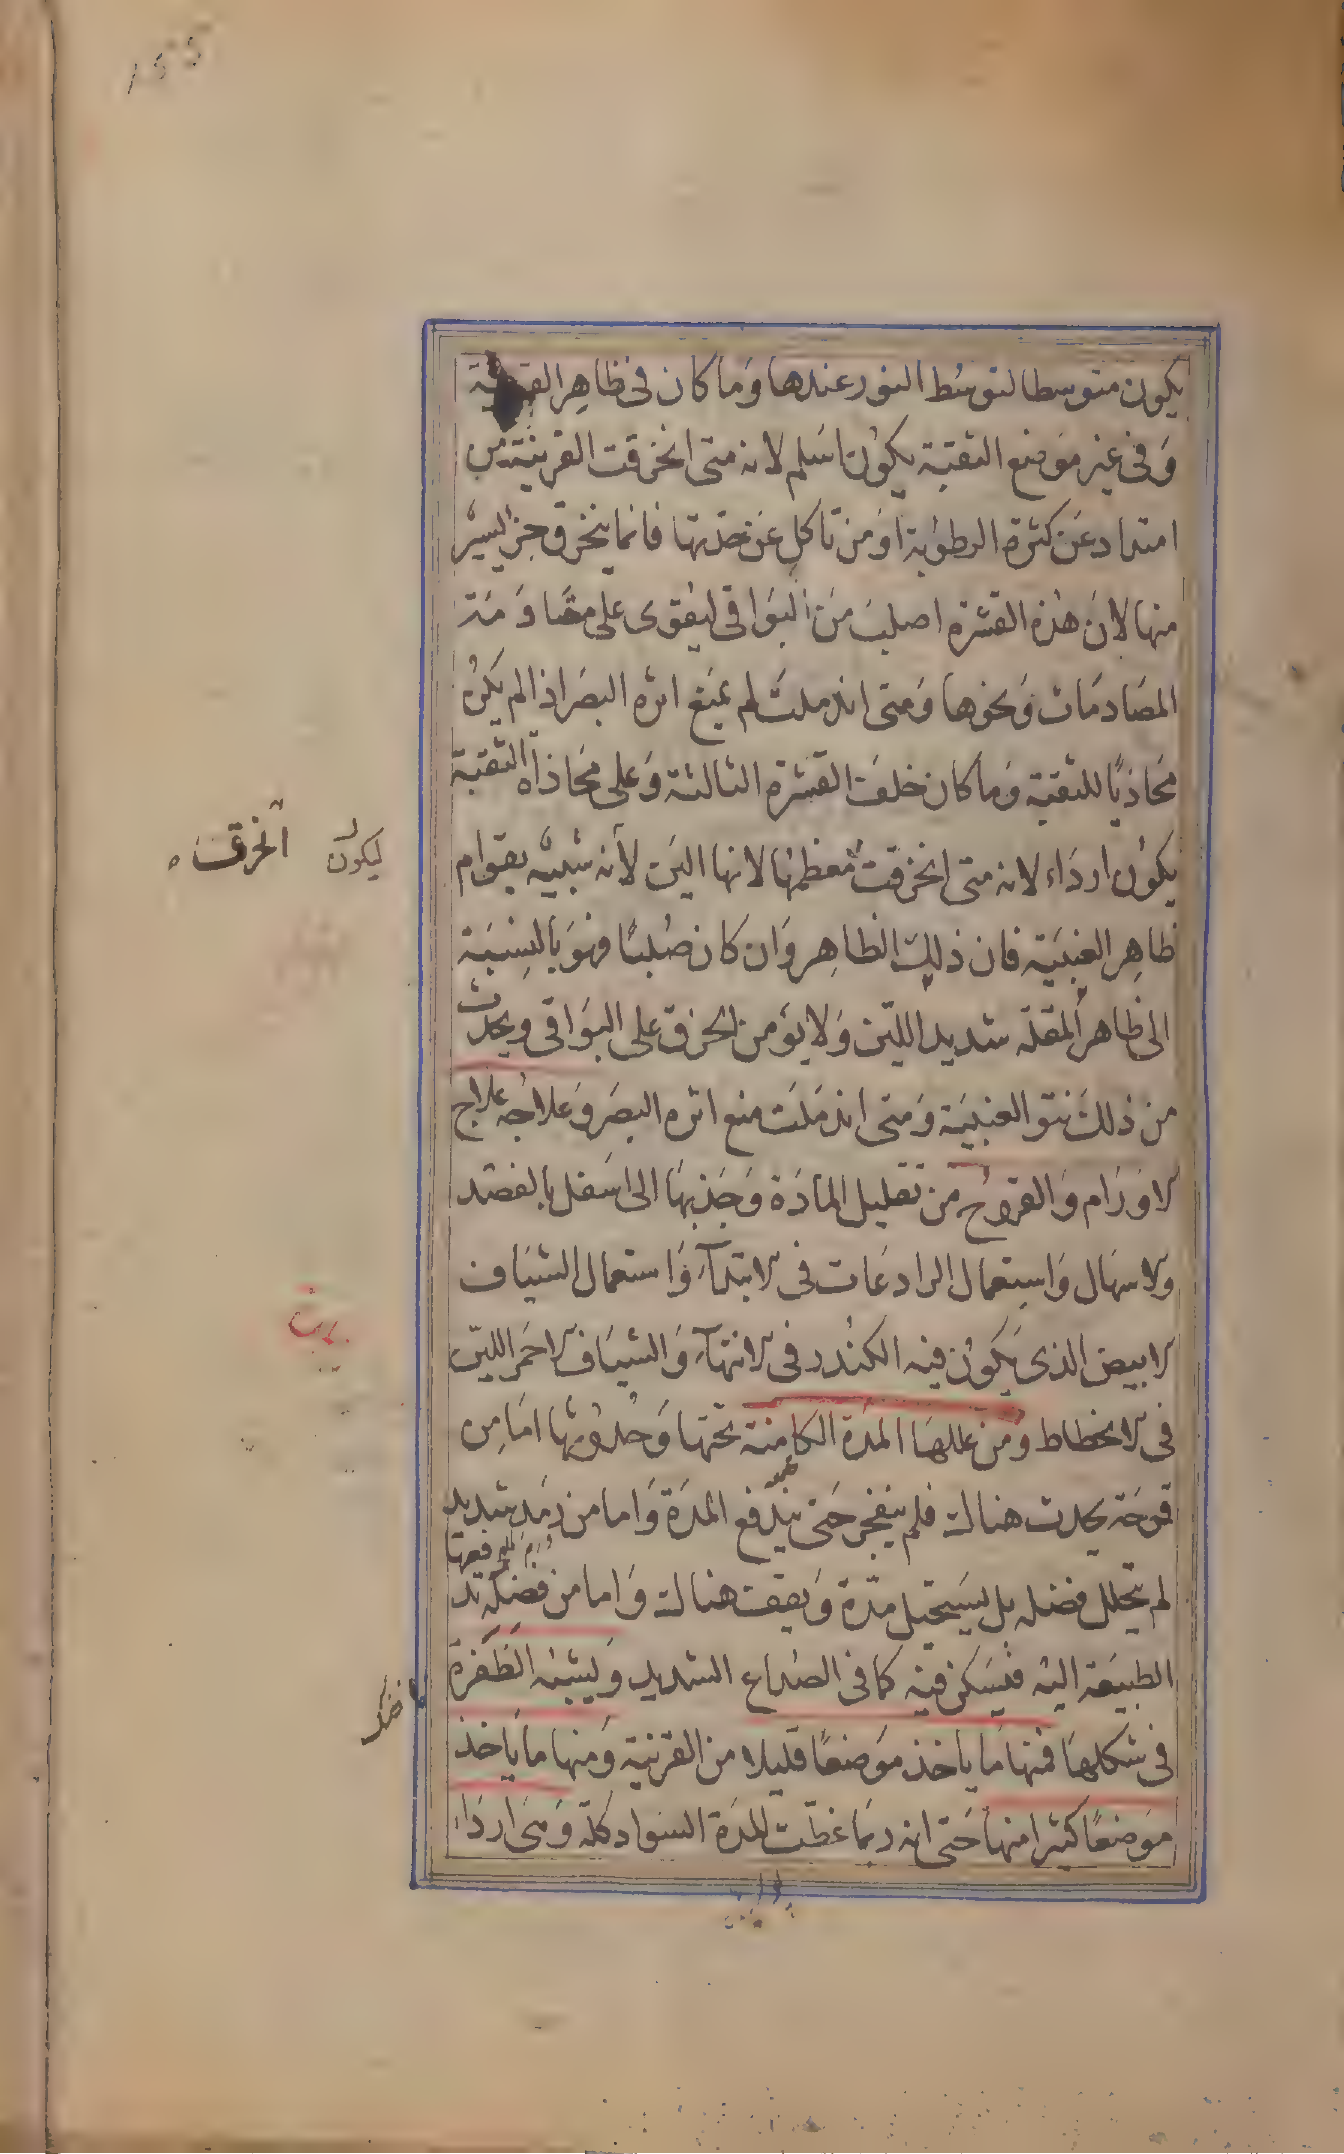 يكون متوسطا لتوسط النور عندها وَما كان فى ظاهِر القرنية
وَ فى غير مَوضع الثقبة يكون اسَلم لانه متى انخرقت القرنية من
امتداد عَن كثرة الرطوبة اوَ من تاكلٍ عَن حدّتها فانما ينخرق جزؤ يسير
منها لانَ هٰذه القشرة اصلبَ مَن البَوَاقى ليقوى على مقاوَمة
المصَادمَات وَنحوها وَمتى اندملت لم يمنع اثره البصَر اذا لم يكن
مَحاذيًا للثقبة وَما كان خلفَ القشرة الثالثة وَعلى مَحَاذاة الثقبة
يكون اردَاء لانه متى انخرقت معظمها لانها الين لأنه شبيه بقوام
ظاهِر العنبيَة فان ذلِك الظاهِر وَان كان صُلبًا فهوَ بالنسِبَة
الى ظاهر المقلة شديد اللين وَلا يؤمن الخرق على البوَاقى ويحدث
من ذلكَ نتو العنبيَة وَمتى اندمَلَت منع اثره البصَر وَعلاجُه علاج
الاوَرَام وَالقروح من تقليل المادَة وَجَذبهَا الى اسَفل بالفصَد
والاسهَال وَاستِعمال الرادعَات فى الابتدآء وَاستعمال الشيَاف
الابيض الذى يَكون فيه الكُندُر فى الانتهآء وَالشيَاف الاحمَر الليّن
فى الانحطاط وَمن عللهَا المدَة الكامِنة تحتها وَحُدوثها امَا مِن
قرحَة يحدث هناك فلم ينفجر حَتى يندفع المدَة وَاما من رمَد شديد
لم يتحلل فضله بل يسَتحيل مدّة وَيقف هناك وَاما من فضلة تد
فعها
الطبيعَة اليه فيسَكن فيه كما فى الصُداع الشديد وَيشبه الظَفرة
فى شكلهَا فمنها مَا ياخذ موَضعًا قليلا من القرنية وَمنها ما يَاخذ
موَضعًا كثيرا منها حَتى انه ربمَا غطّت المدَة السَواد كلّه وَهىَ اردَاء
ليكون
الخرق